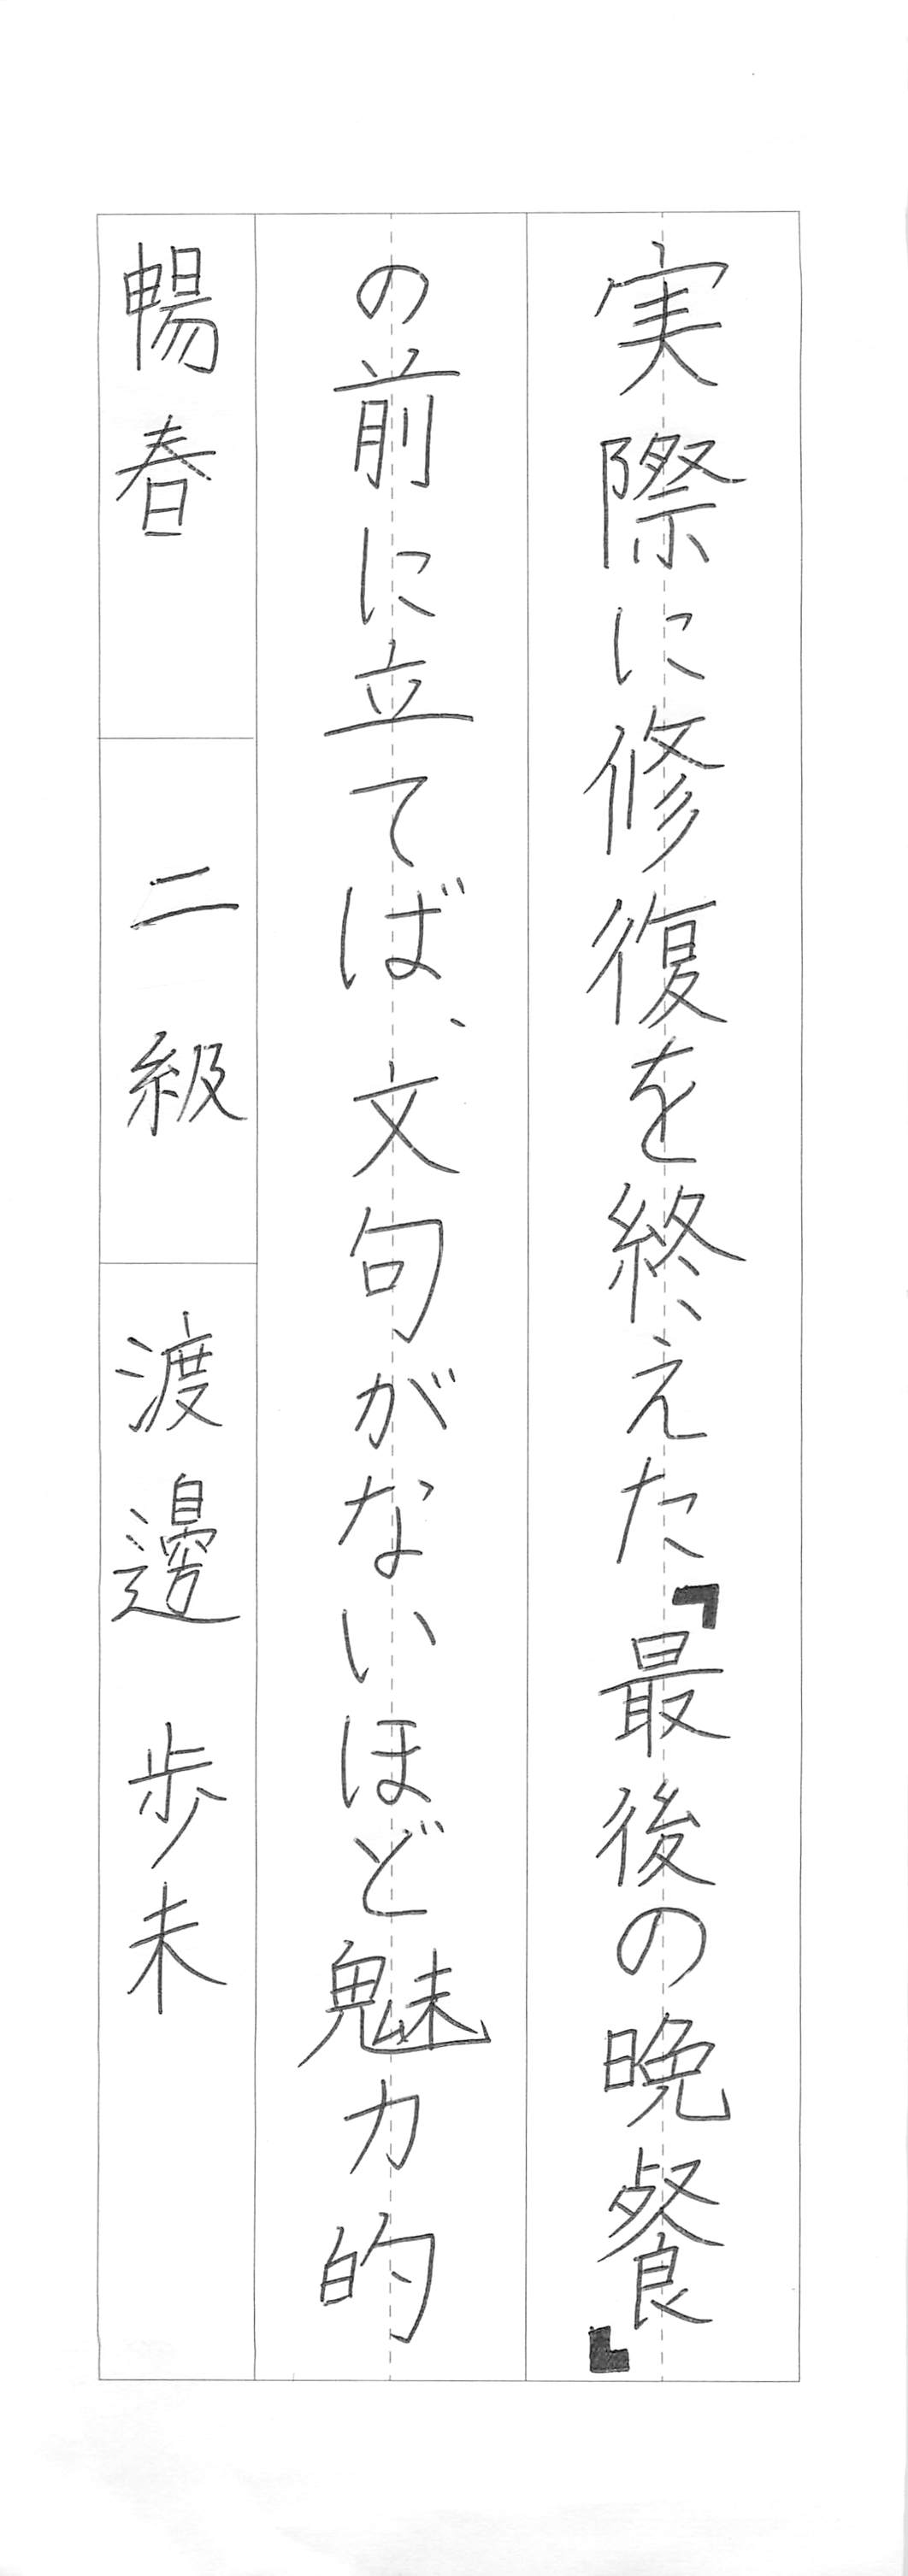 実際に修復を終えた『最後の晩餐』
の前に立てば、文句がないほど魅力的
暢春 二級 渡邊 歩未